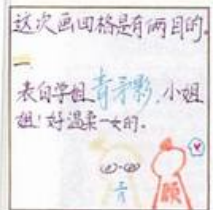 这次画回格是有两目的.
一
表白学姐青矛影,小姐
姐!好温柔一女的.
青
顾